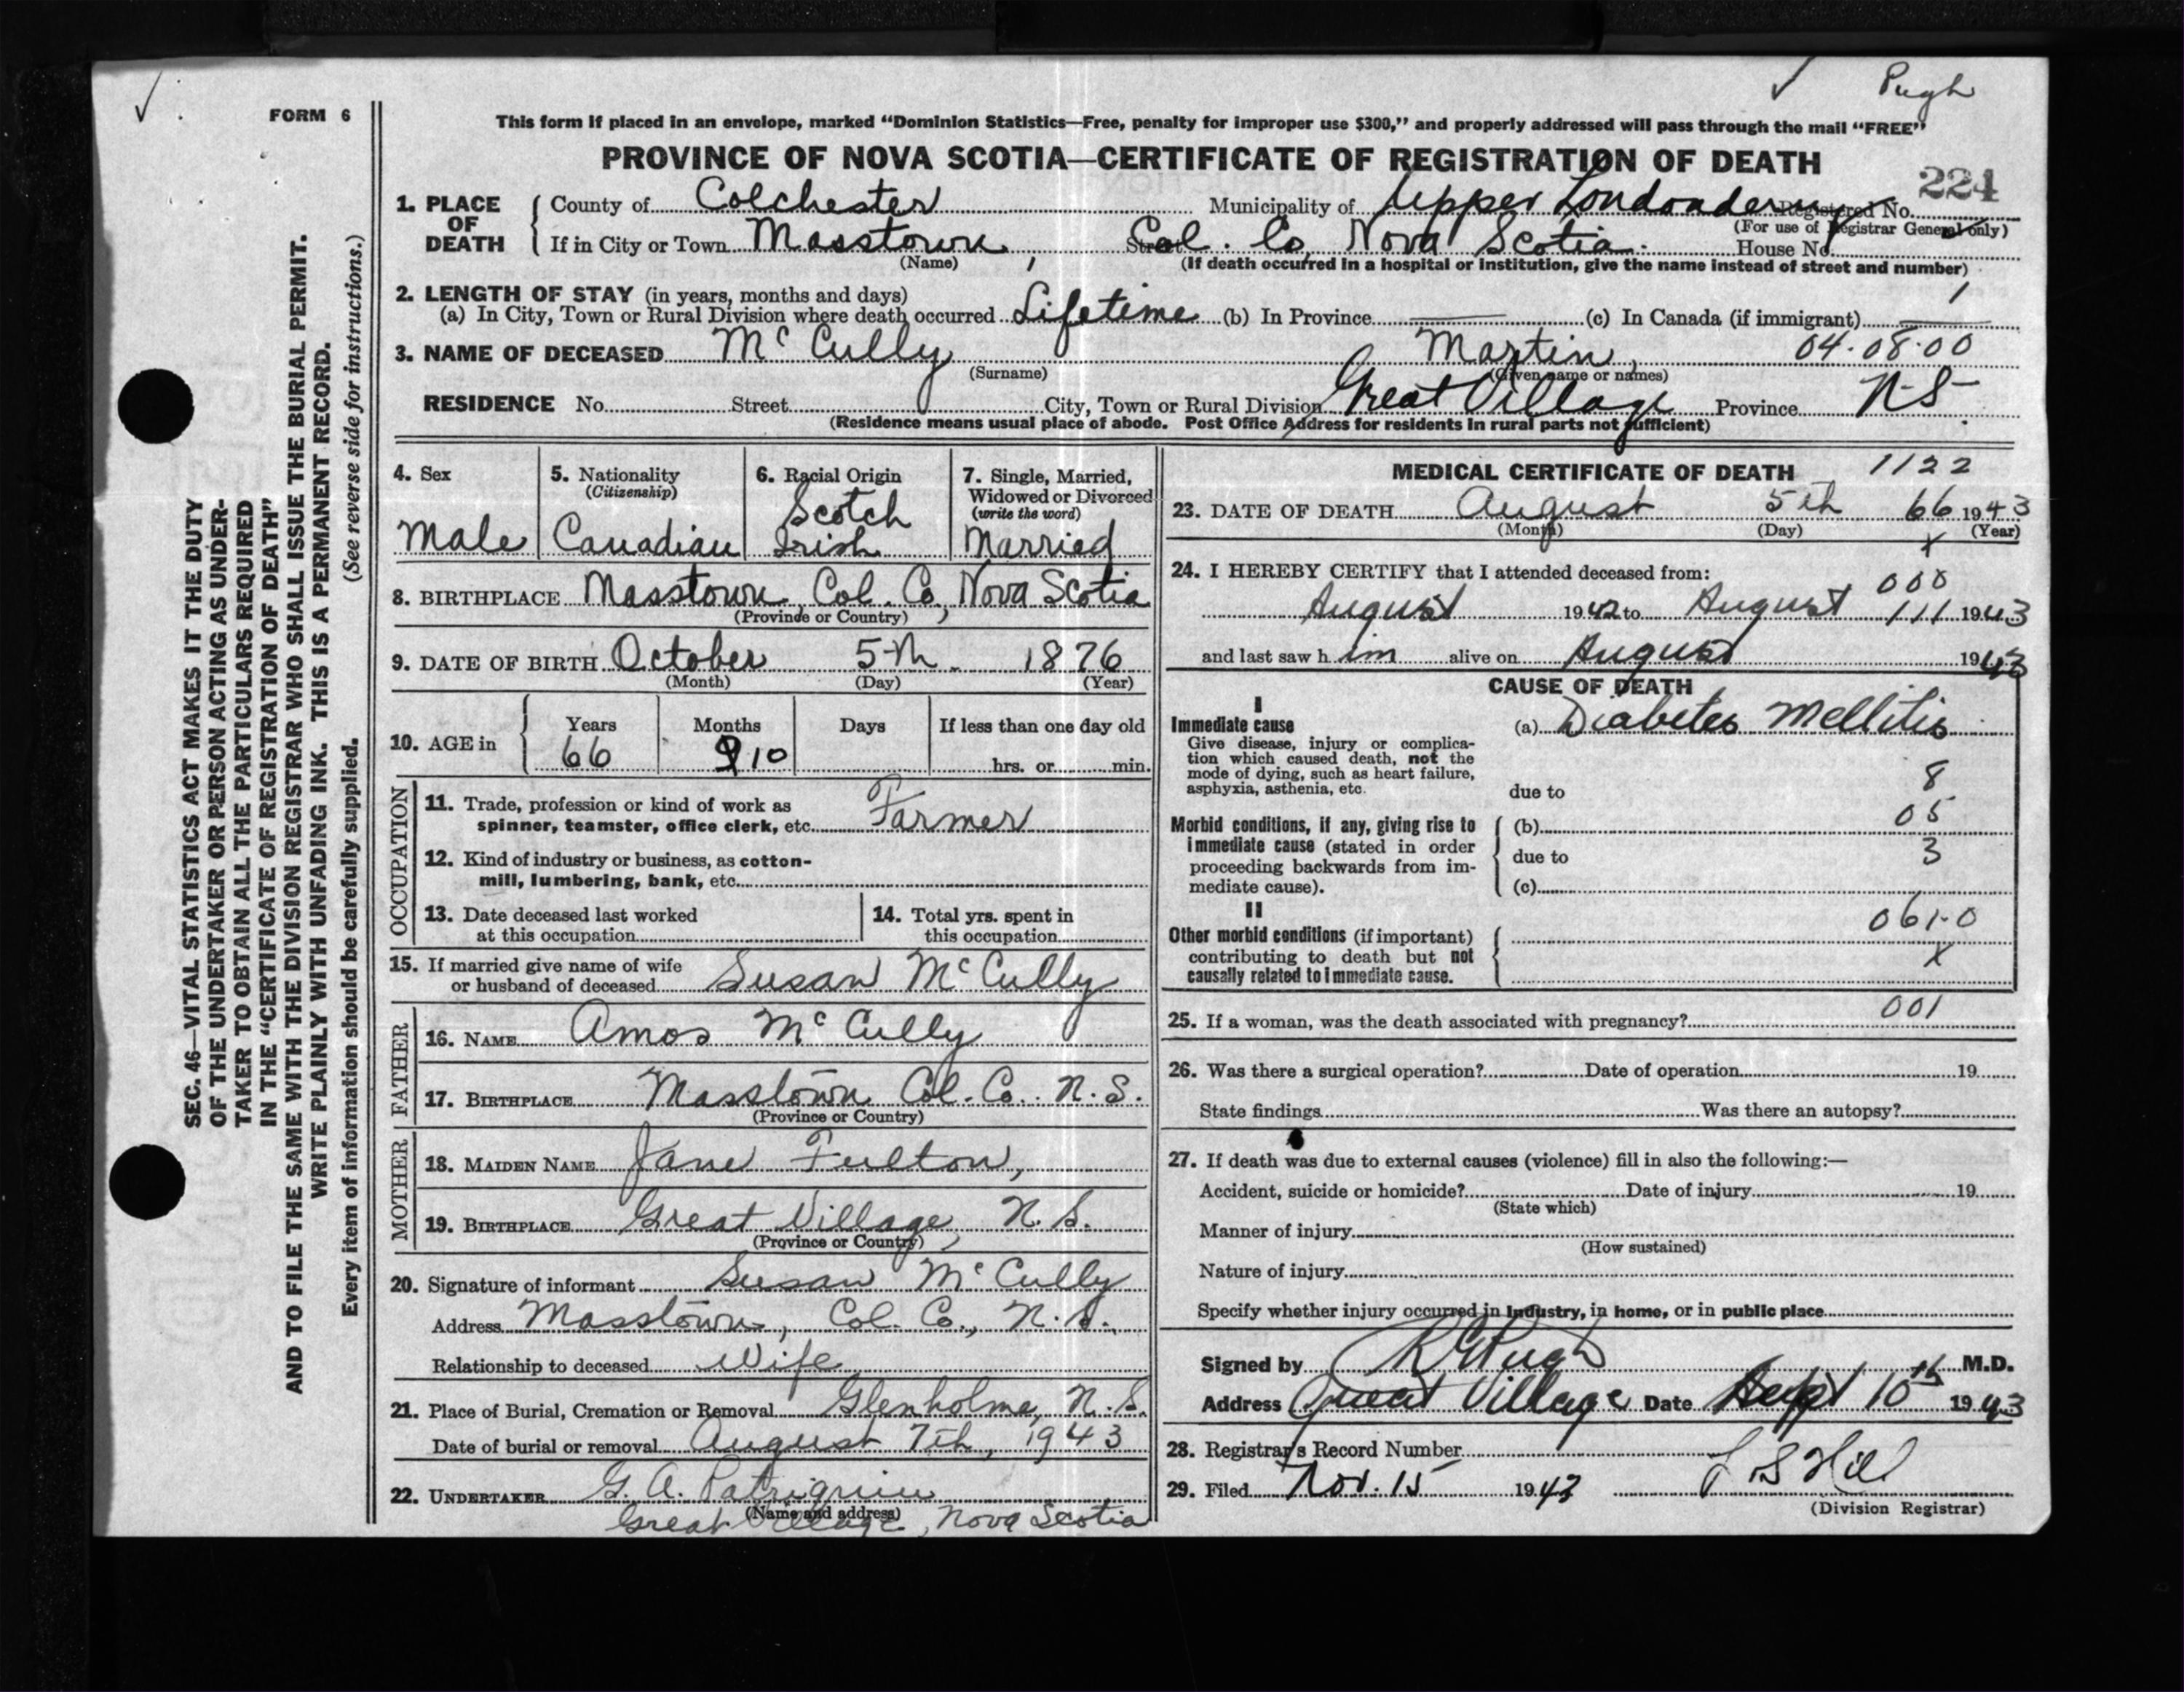 Pugh
FORM 6
This form if placed in an envelope, marked “Dominion Statistics—Free, penalty for improper use $300,” and properly addressed will pass through the mail “FREE”
PROVINCE OF NOVA SCOTIA—CERTIFICATE OF REGISTRATION OF DEATH
224
1. PLACE OF DEATH
County of Colchester Municipality of Upper Londonderry Registered No.
(For use of Registrar General only)
If in City or Town Masstown, Street Col. Co. Nova Scotia. House No.
(Name) (If death occurred in a hospital or institution, give the name instead of street and number)
2. LENGTH OF STAY (in years, months and days)
(a) In City, Town or Rural Division where death occurred Lifetime (b) In Province — (c) In Canada (if immigrant) —
3. NAME OF DECEASED McCully Martin, 04-08-00
(Surname) (Given name or names)
RESIDENCE No. Street City, Town or Rural Division Great Village Province N-S-
(Residence means usual place of abode. Post Office Address for residents in rural parts not sufficient)
4. Sex
Male
5. Nationality
(Citizenship)
Canadian
6. Racial Origin
Scotch
Irish
7. Single, Married,
Widowed or Divorced
(write the word)
Married
8. BIRTHPLACE Masstown, Col. Co, Nova Scotia
(Province or Country)
9. DATE OF BIRTH October 5th. 1876
(Month) (Day) (Year)
10. AGE in
Years Months Days If less than one day old
66 9 10 hrs. or min.
OCCUPATION
11. Trade, profession or kind of work as
spinner, teamster, office clerk, etc. Farmer
12. Kind of industry or business, as cotton-
mill, lumbering, bank, etc.
13. Date deceased last worked
at this occupation
14. Total yrs. spent in
this occupation
15. If married give name of wife
or husband of deceased Susan McCully
FATHER
16. NAME Amos McCully
17. BIRTHPLACE Masstown Col. Co. N.S.
(Province or Country)
MOTHER
18. MAIDEN NAME Jane Fulton,
19. BIRTHPLACE Great Village, N.S.
(Province or Country)
20. Signature of informant Susan McCully
Address Masstown, Col. Co., N.S.
Relationship to deceased Wife
21. Place of Burial, Cremation or Removal Glenholme, N.S.
Date of burial or removal August 7th, 1943
22. UNDERTAKER G. A. Patriquin
(Name and address)
Great Village, Nova Scotia
MEDICAL CERTIFICATE OF DEATH 1122
23. DATE OF DEATH August 5th 66 1943
(Month) (Day) (Year)
x
24. I HEREBY CERTIFY that I attended deceased from:
000
August 1942 to August 111 1943
and last saw him alive on August 1943
CAUSE OF DEATH
I
Immediate cause (a) Diabetes Mellitis
Give disease, injury or complica-
tion which caused death, not the
mode of dying, such as heart failure,
asphyxia, asthenia, etc.
due to 8
Morbid conditions, if any, giving rise to
immediate cause (stated in order
proceeding backwards from im-
mediate cause).
(b) 05
due to 3
(c)
II
Other morbid conditions (if important)
contributing to death but not
causally related to immediate cause.
061-0
X
25. If a woman, was the death associated with pregnancy? 001
26. Was there a surgical operation? Date of operation 19
State findings Was there an autopsy?
27. If death was due to external causes (violence) fill in also the following:—
Accident, suicide or homicide? Date of injury 19
(State which)
Manner of injury
(How sustained)
Nature of injury
Specify whether injury occurred in Industry, in home, or in public place
Signed by R G Pugh M.D.
Address Great Village Date Sept 10th 1943
28. Registrar's Record Number
29. Filed Nov. 15 1943 L S Hill
(Division Registrar)
SEC. 46—VITAL STATISTICS ACT MAKES IT THE DUTY
OF THE UNDERTAKER OR PERSON ACTING AS UNDER-
TAKER TO OBTAIN ALL THE PARTICULARS REQUIRED
IN THE “CERTIFICATE OF REGISTRATION OF DEATH”
AND TO FILE THE SAME WITH THE DIVISION REGISTRAR WHO SHALL ISSUE THE BURIAL PERMIT.
WRITE PLAINLY WITH UNFADING INK. THIS IS A PERMANENT RECORD.
Every item of information should be carefully supplied. (See reverse side for instructions.)